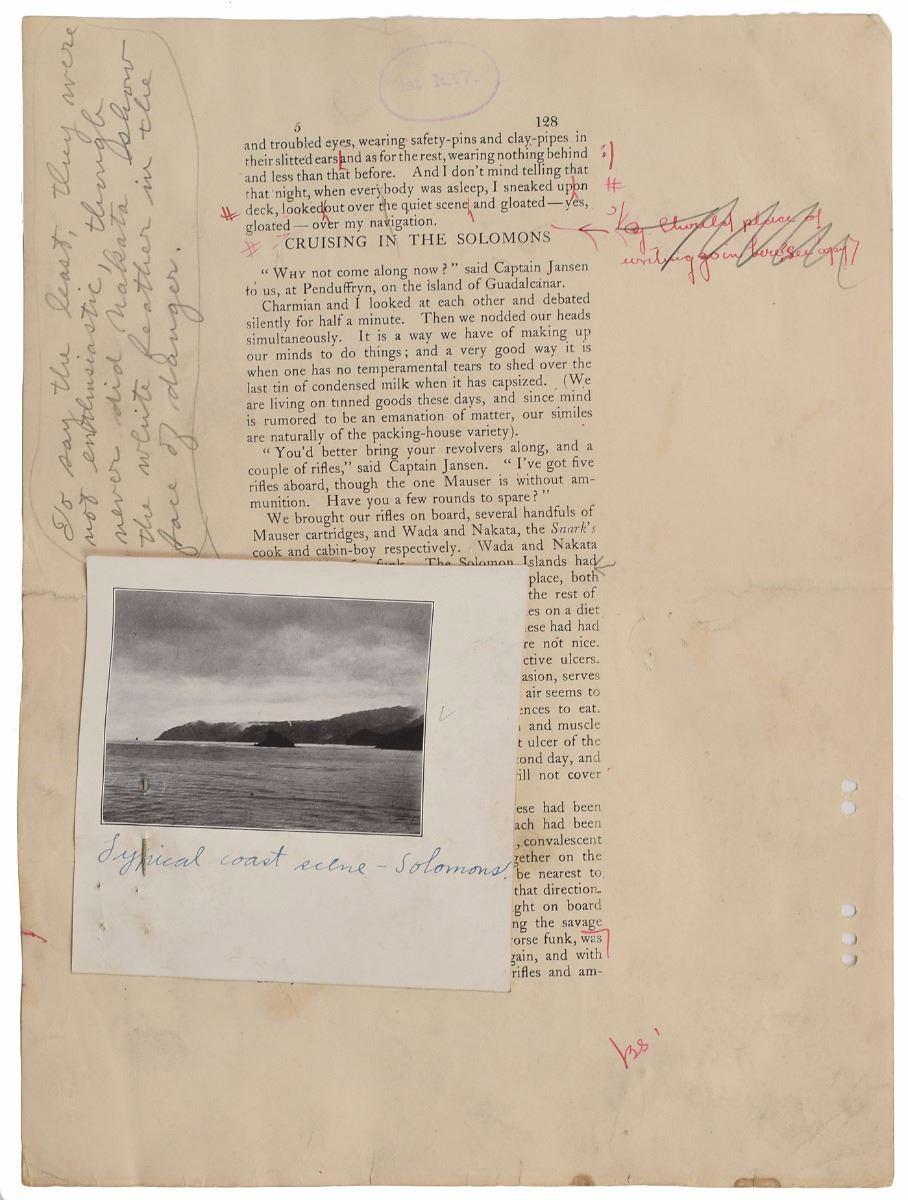 To say the least, they were
not enthusiastic, though
never did Nakata show
the white feather in the
face of danger.
1st REV.
5 128
and troubled eyes, wearing safety-pins and clay-pipes in
their slitted ears and as for the rest, wearing nothing behind
and less than that before. And I don't mind telling that
that night, when everybody was asleep, I sneaked upon
deck, looked out over the quiet scene and gloated—yes,
gloated — over my navigation.
CRUISING IN THE SOLOMONS
place of
“ WHY not come along now? ” said Captain Jansen
to us, at Penduffryn, on the island of Guadalcanar.
Charmian and I looked at each other and debated
silently for half a minute. Then we nodded our heads
simultaneously. It is a way we have of making up
our minds to do things; and a very good way it is
when one has no temperamental tears to shed over the
last tin of condensed milk when it has capsized. (We
are living on tinned goods these days, and since mind
is rumored to be an emanation of matter, our similes
are naturally of the packing-house variety).
“ You'd better bring your revolvers along, and a
couple of rifles,” said Captain Jansen. “ I've got five
rifles aboard, though the one Mauser is without am-
munition. Have you a few rounds to spare? ”
We brought our rifles on board, several handfuls of
Mauser cartridges, and Wada and Nakata, the Snark's
cook and cabin-boy respectively. Wada and Nakata
funk. The Solomon Islands had
place, both
the rest of
es on a diet
ese had had
re not nice.
ctive ulcers.
asion, serves
air seems to
ences to eat.
and muscle
t ulcer of the
ond day, and
ill not cover
ese had been
ach had been
, convalescent
gether on the
be nearest to
that direction.
ght on board
ng the savage
orse funk, was
gain, and with
rifles and am-
Typical coast scene – Solomons.